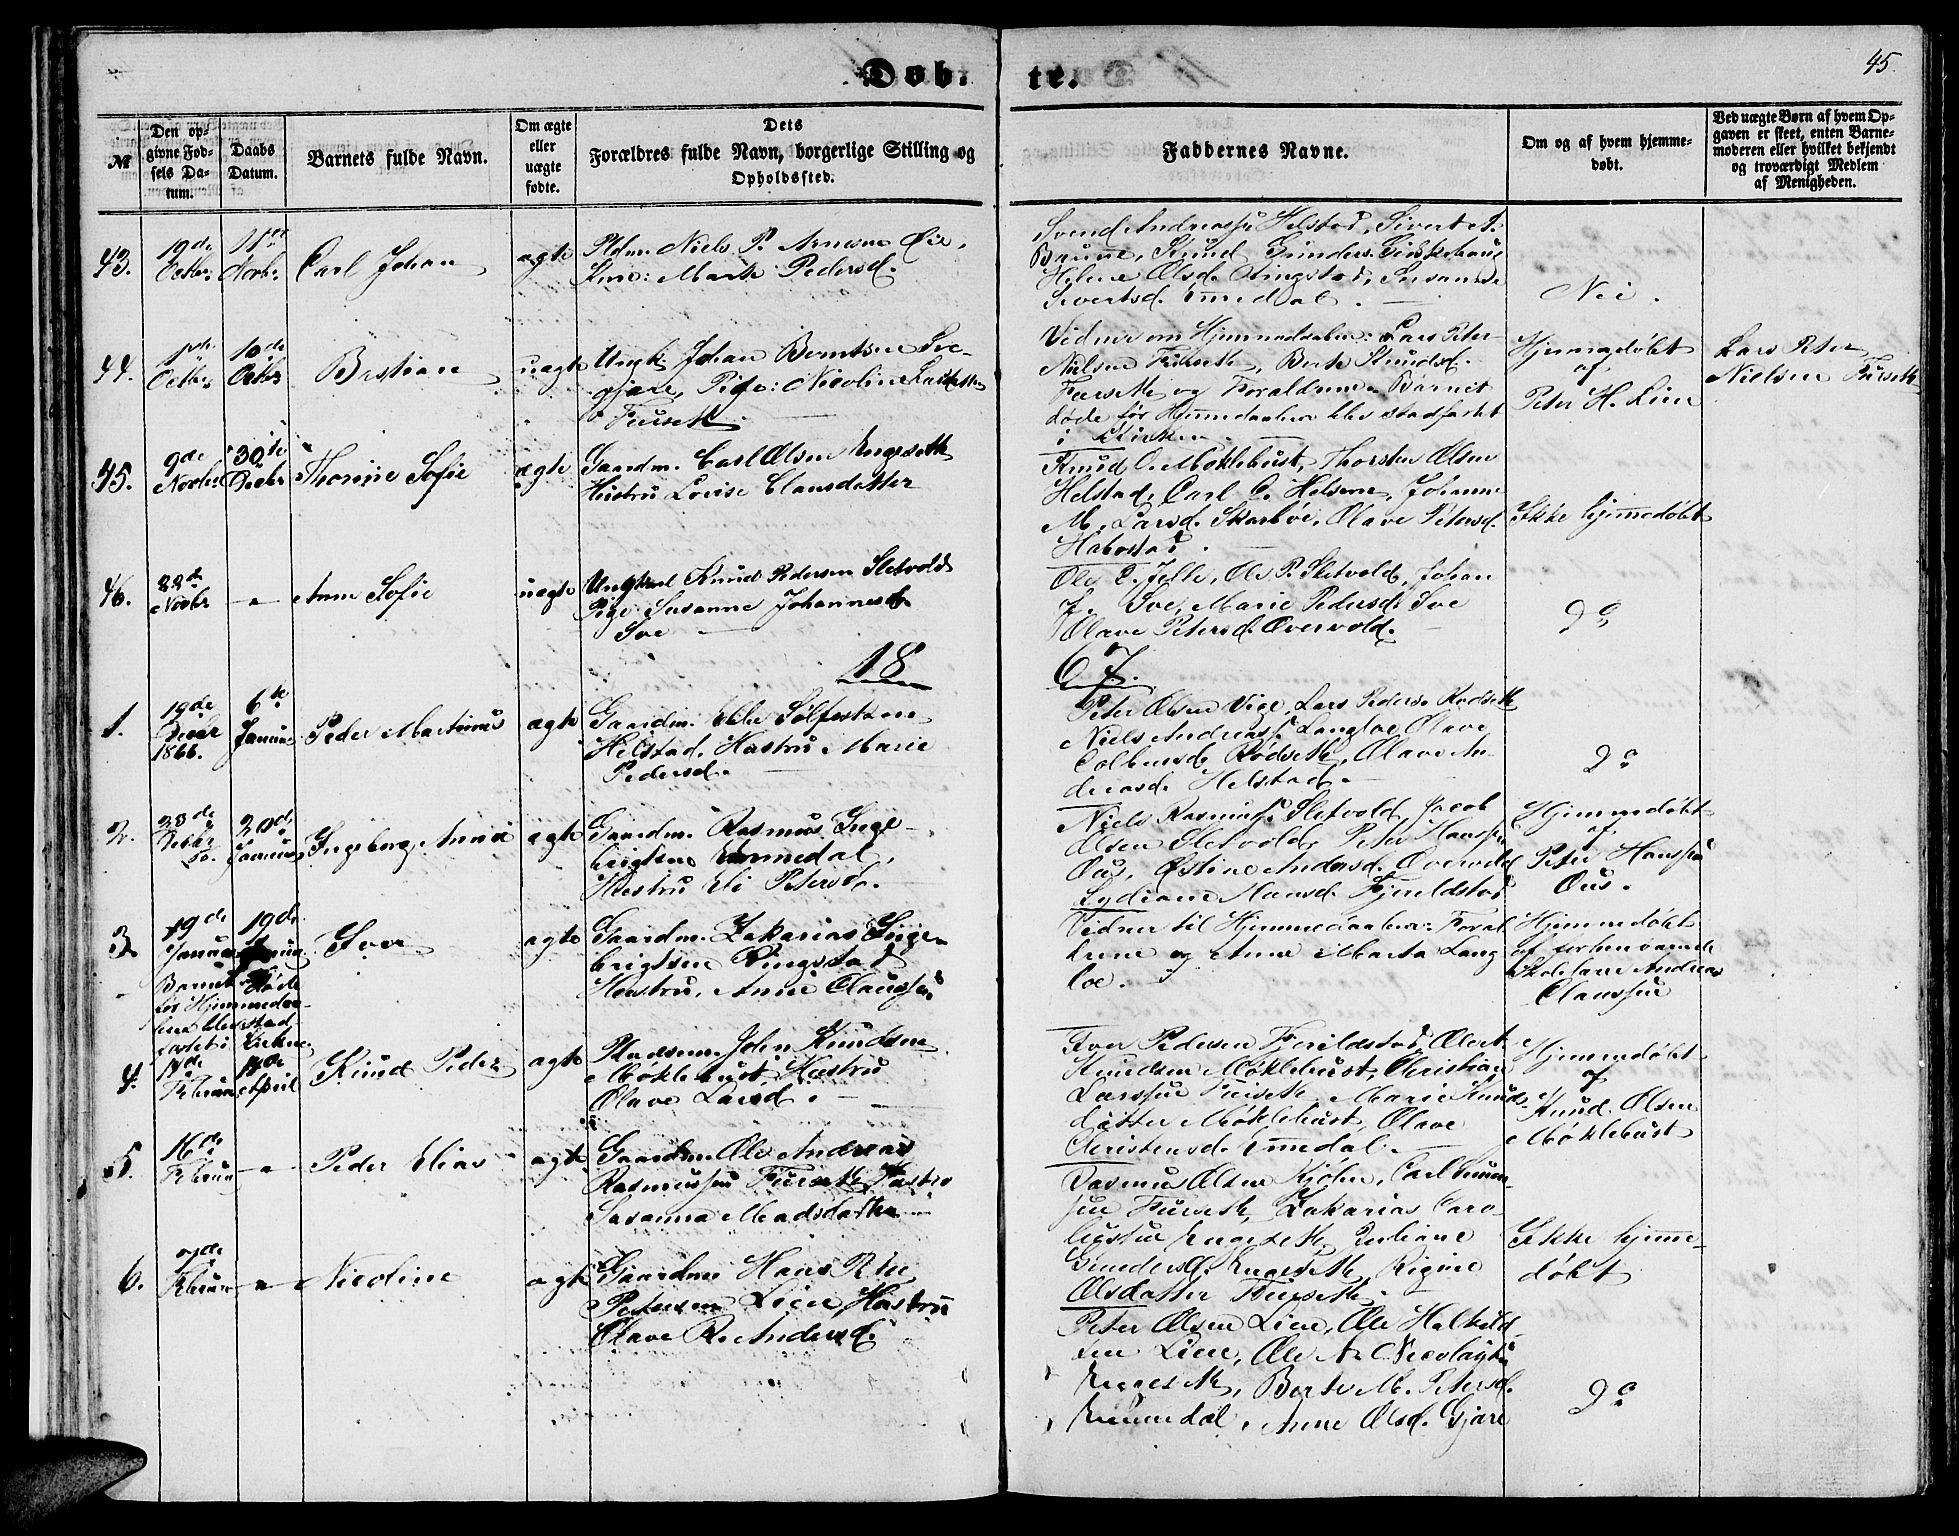 Døb-
te.
45.
№
Den op-
givne Fød-
sels Da-
tum.
Daabs
Datum.
Barnets fulde Navn.
Om ægte
eller
uægte
fødte.
Dets
Forældres fulde Navn, borgerlige Stilling og
Opholdssted.
Faddernes Navne.
Om og af hvem hjemme-
døbt.
Ved uægte Børn af hvem Op-
gaven er skeet, enten Barne-
moderen eller hvilket bekjendt
og troværdigt Medlem
af Menigheden.
43.
19de
Octbr.
11te
Novbr.
Carl Johan
ægte
Pldm. Niels P. Arnesen
Kone: Marte Pedersd.
Svend Andreass. Helstad, Sivert A.
Brune, Knud Gunders.
Helene Olsd. Ringstad, Susanne
Sivertsd. Emedal.
Nei.
44.
Octbr
16de
Octbr
Bastian
uægte
Ungk. Johan Berntsen Sve-
gjære, Pige: Nicoline Larsdatter
Furseth
Vidner om Hjemmedaaben: Lars Peter
Nielsen Furseth, Berte Knudsd.
Furseth og Forældrene. Barnet
døde før Hjemmedaaben blev stadfæstet
i Kirken.
Hjemmedøbt
af
Peter H. Lien
Lars Peter
Nielsen Furseth
45.
9de
Novbr.
30te
Decbr
Thomine Sofie
ægte
Gaardm. Carl Olsen Engeseth
Hustru Lovise Clausdatter
Knud O. Møklebust, Thorsten Olsen
Helstad, Carl C. Helsem, Johanne
M. Larsd. Skarbøe, Olave Petersd.
Habostad.
Ikke hjemmedøbt
46.
22de
Novbr
— " —
Anne Sofie
uægte
Ungkarl Knud Pedersen Sletvold
Pige Susanne Johannesd.
Sve
Ole C. Jelle, Ole P. Sletvold, Johan
J. Sve, Marie Pedersd. Sve
Olave Petersd. Overvold.
do
18
67.
1.
19de
Decbr
1866.
6te
Januar
Peder Martinus
ægte
Gaardm. Elling Sølfestsen
Helstad, Hustru Marie
Pedersd.
Peter Olsen Vige, Lars Peders. Rødseth
Niels Andreass. Langloe, Olave
Colbensd. Rødseth, Olave An-
dreasd. Helstad.
do
2.
28de
Decbr
do.
20de
Januar
Ingeborg Anna
ægte
Gaardm. Rasmus Inge-
brigtsen Emmedal,
Hustru Eli Petersd.
Niels Rasmuss. Sletvold, Jacob
Olsen Sletvold, Peter Hanssen
Ous, Østine Andersd. Overvold
Lydiane Hansd. Fjeldstad
Hjemmedøbt
af
Peter Hanssen
Ous.
3.
19de
Januar
19de
Januar
Barnet døde
før Hjemmedaa-
ben blev stad-
fæstet i Kirken
Iver
ægte
Gaardm. Zakarias Inge-
brigtsen Ringstad
Hustru, Anne Claussen
Vidner til Hjemmedaaben: Foræl-
drene og Anne Marta Lang-
loe.
Hjemmedøbt
af forhenværende
Skolelærer Andreas
Claussen
4.
Februar
April
Knud Peder
ægte
Pladsm. John Knudsen
Møklebust, Hustru
Olave Larsd.
Iver Pedersen Fjeildstad, Olert
Knudsen Møklebust, Christian
Larssen Furseth, Marie Knuds-
datter Møklebust, Olave
Christensd. Emedal.
Hjemmedøbt
af
Knud Olsen
Møklebust
5.
16de
Februar
— " —
Peder Elias
ægte
Gaardm. Ole Andreas
Rasmussen Furseth, Hustru
Susanna Madsdatter
Rasmus Olsen Kjøhn, Carl Simon-
sen Furseth, Zakarias Caro-
liussen Engeseth, Juliane
Gundersd. Engeseth, Rigine
Olsdatter Furseth.
Ikke hjemme-
døbt
6.
7de
Februar
— " —
Nicoline
ægte
Gaardm. Hans Peter
Petersen Lien, Hustru
Olave R. Andersd.
Peter Olsen Lien, Ole Halkild-
sen Lien, Ole A. Nicolays.
Engeseth, Berte M. Petersd.
Emmedal, Anne Olsd. Gjære
do